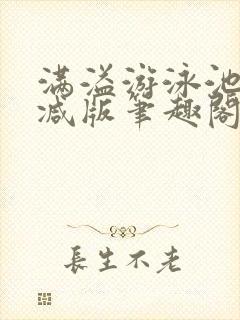 满溢游泳池
减版笔趣阁
長生不老